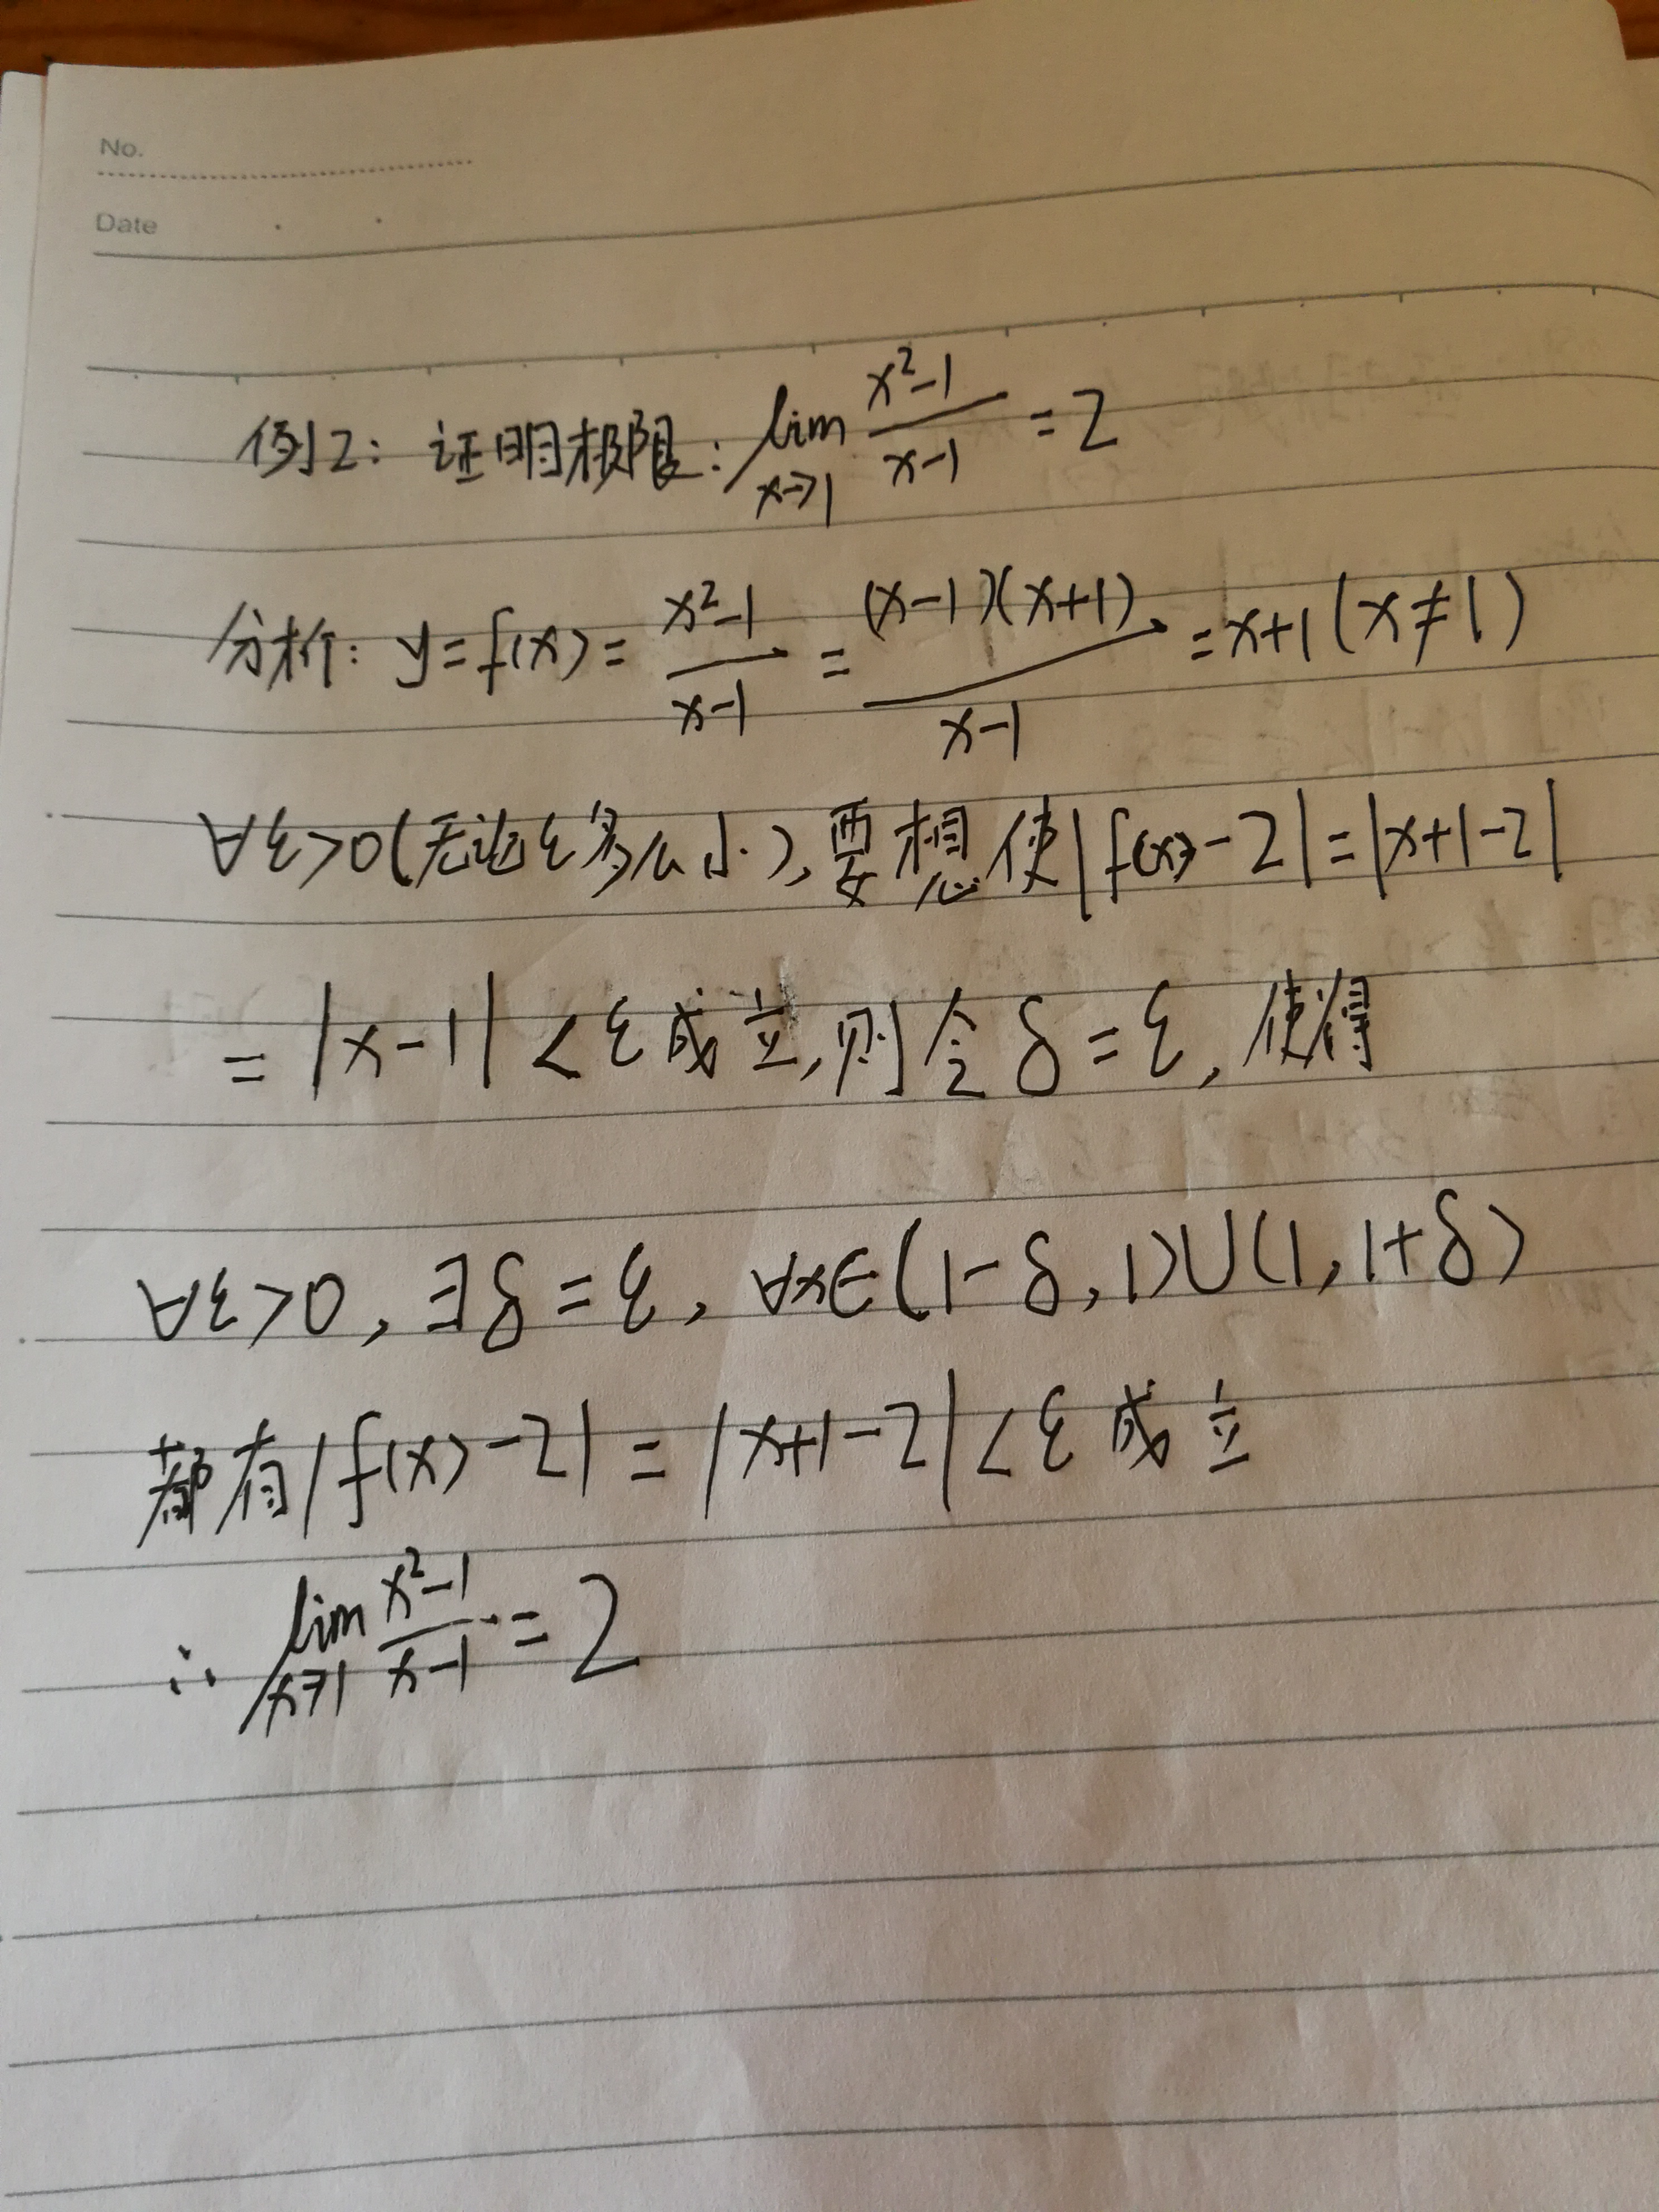 No.
Date
例2: 证明极限: lim_{x→1} (x²-1)/(x-1) = 2
分析: y=f(x)= (x²-1)/(x-1) = (x-1)(x+1)/(x-1) = x+1 (x≠1)
∀ε>0(无论ε多么小), 要想使|f(x)-2|=|x+1-2|
=|x-1|<ε成立, 则令δ=ε, 使得
∀ε>0, ∃δ=ε, ∀x∈(1-δ,1)∪(1,1+δ)
都有|f(x)-2|=|x+1-2|<ε成立
∴ lim_{x→1} (x²-1)/(x-1) = 2